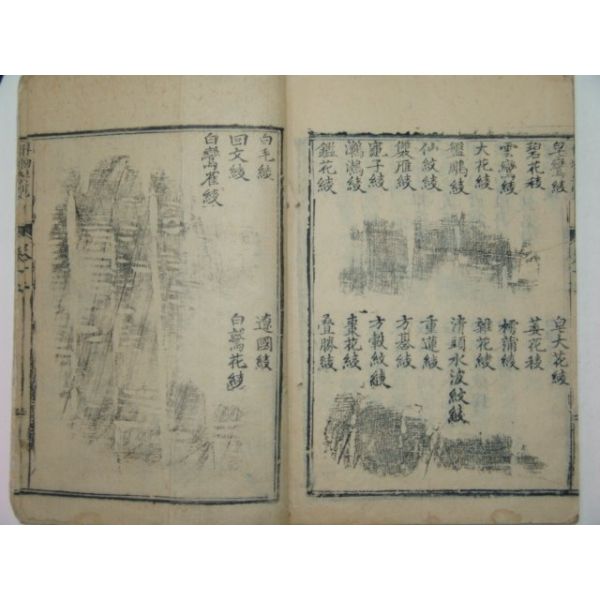 皁鸞綾　皁大花綾
碧花綾　姜花綾
雲鸞綾　樗蒲綾
大花綾　雜花綾
盤鵰綾　濤頭水波紋綾
仙紋綾　重蓮綾
雙雁綾　方碁綾
龜子綾　方縠紋綾
鸂鶒綾　棗花綾
鑑花綾　疊勝綾
白毛綾　遼國綾
回文綾　白鷲花綾
白鸞雀綾